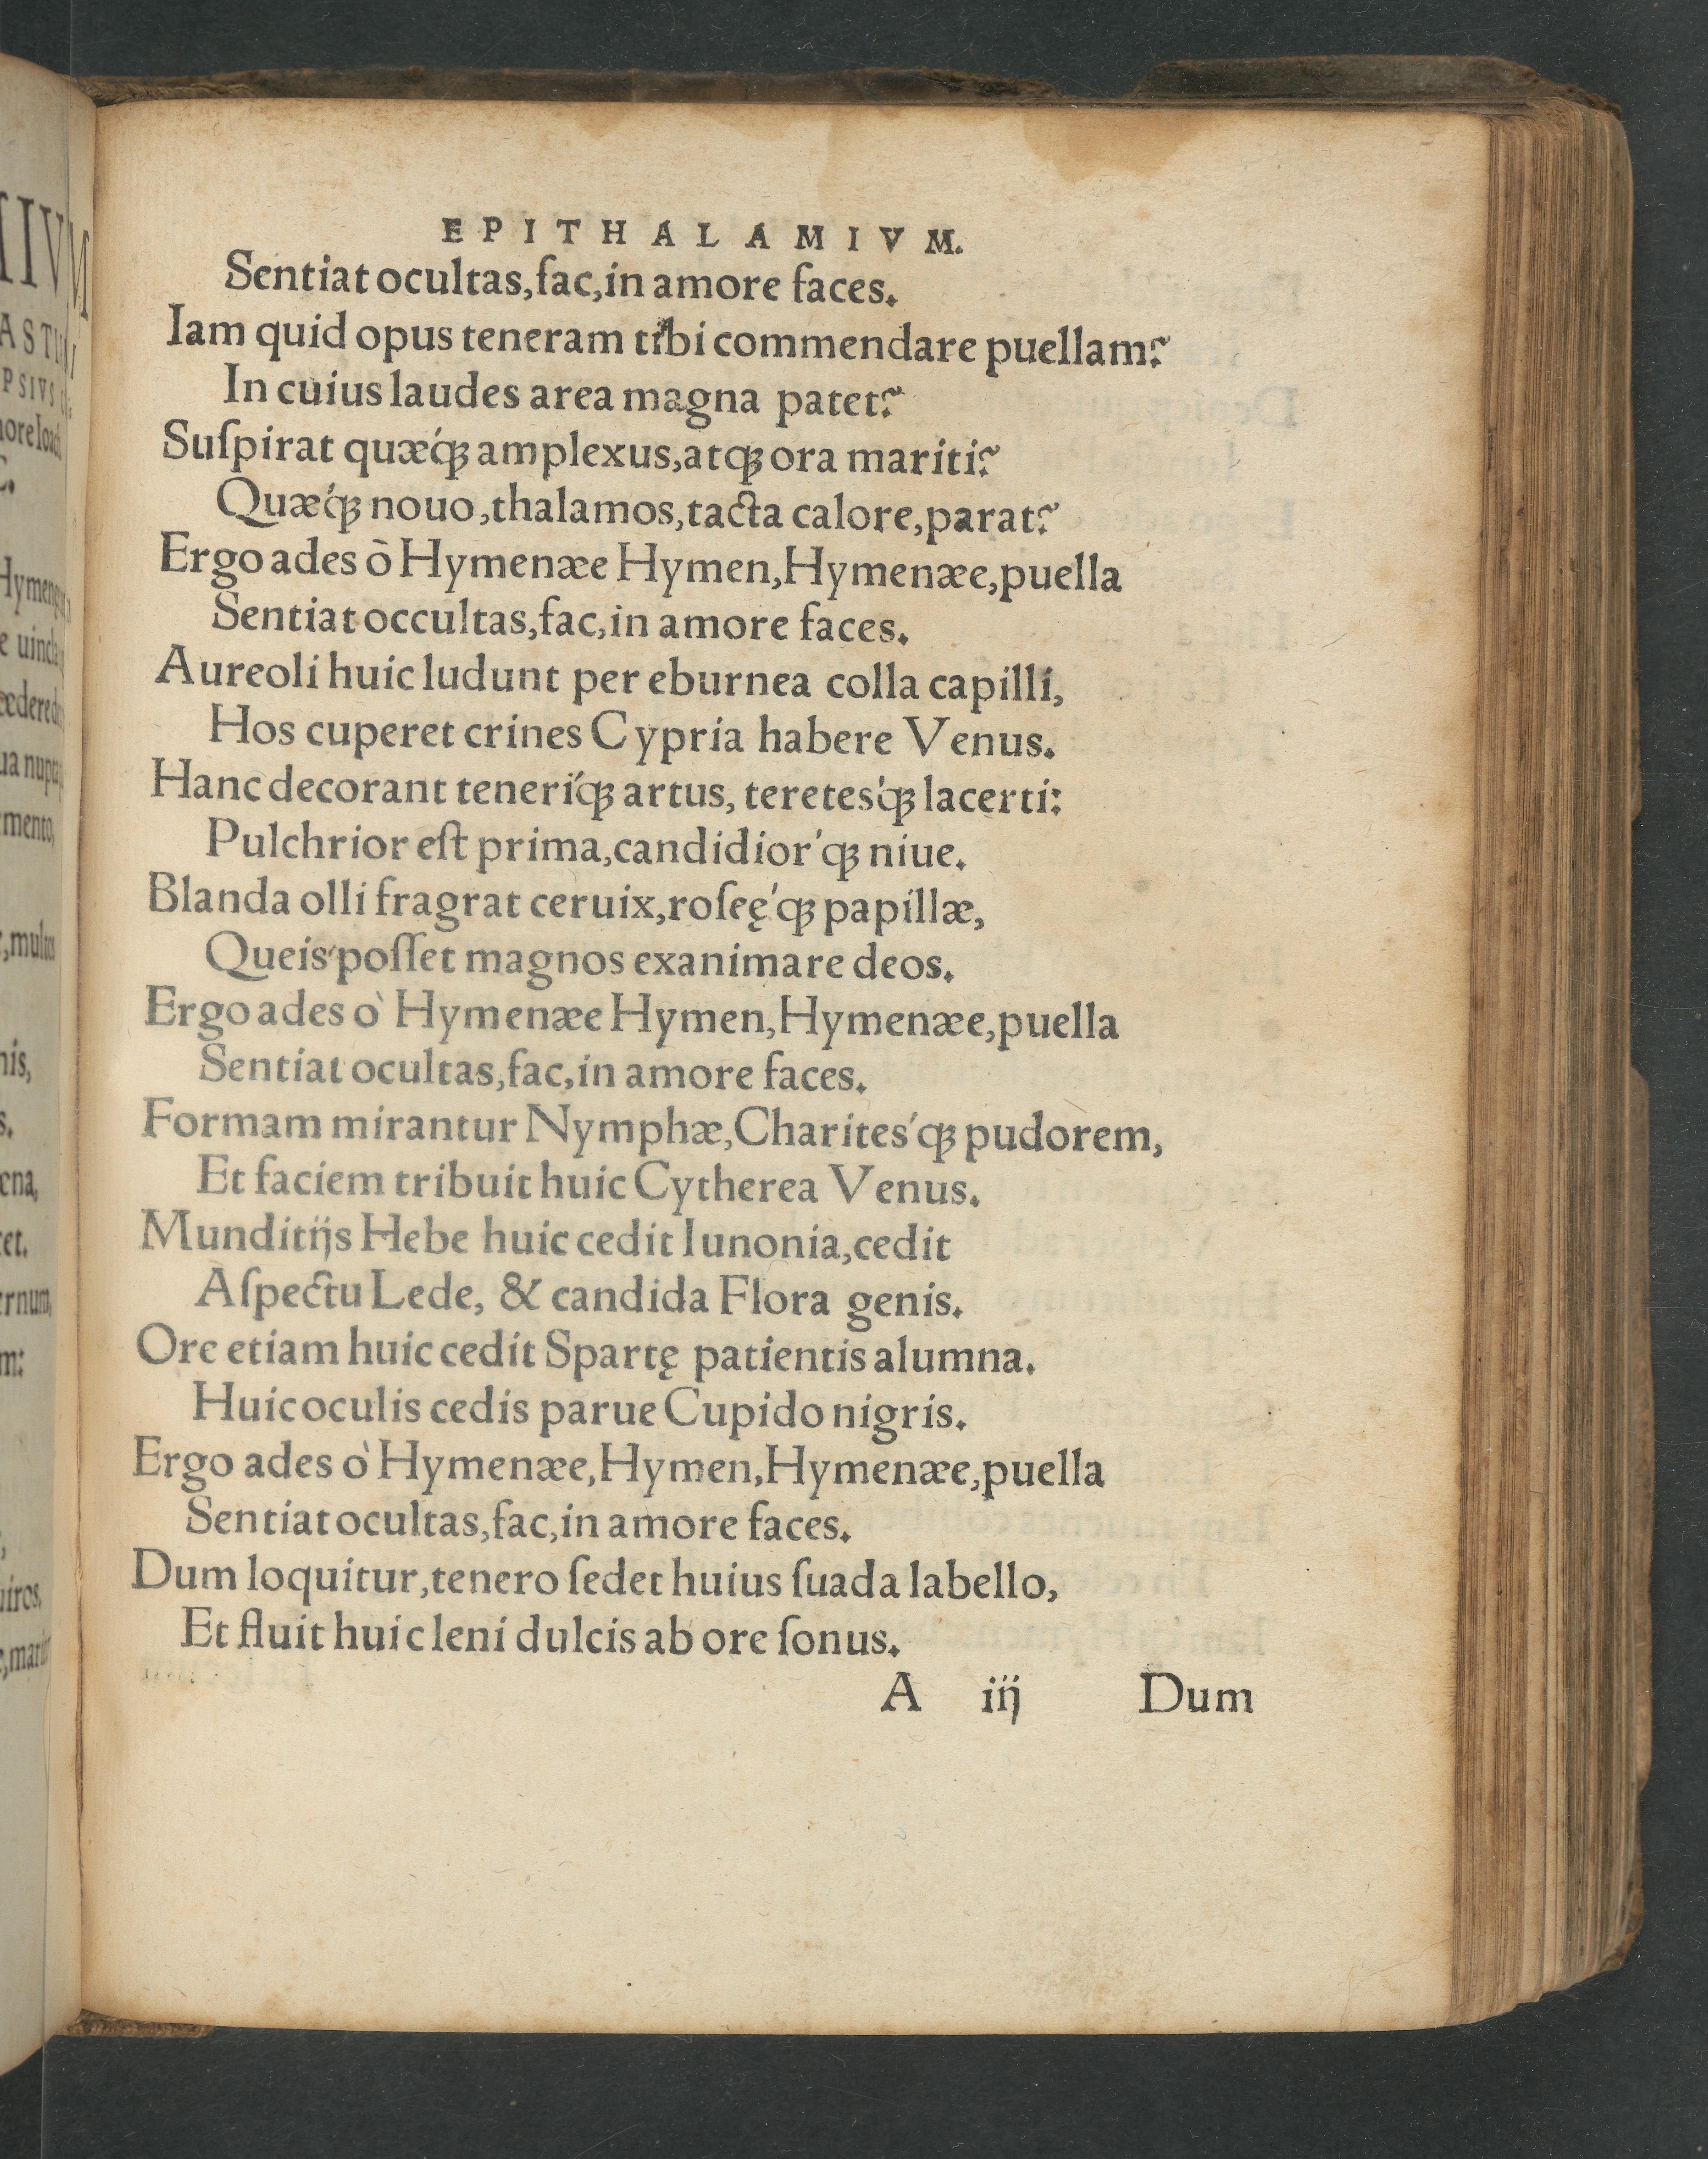 EPITHALAMIVM.
Sentiat ocultas, fac, in amore faces.
Iam quid opus teneram tibi commendare puellam?
In cuius laudes area magna patet?
Suſpirat quǽꝗ amplexus, atꝗ ora mariti?
Quǽꝗ nouo, thalamos, tacta calore, parat?
Ergo ades ò Hymenæe Hymen, Hymenæe, puella
Sentiat occultas, fac, in amore faces.
Aureoli huic ludunt per eburnea colla capilli,
Hos cuperet crines Cypria habere Venus.
Hanc decorant teneríꝗ artus, teretes'ꝗ lacerti:
Pulchrior eſt prima, candidior'ꝗ niue.
Blanda olli fragrat ceruix, roſeę'ꝗ papillæ,
Queis' poſſet magnos exanimare deos.
Ergo ades ò Hymenæe Hymen, Hymenæe, puella
Sentiat ocultas, fac, in amore faces.
Formam mirantur Nymphæ, Charites'ꝗ pudorem,
Et faciem tribuit huic Cytherea Venus.
Munditijs Hebe huic cedit Iunonia, cedit
Aſpectu Lede, & candida Flora genis.
Ore etiam huic cedit Spartę patientis alumna.
Huic oculis cedis parue Cupido nigris.
Ergo ades ò Hymenæe, Hymen, Hymenæe, puella
Sentiat ocultas, fac, in amore faces.
Dum loquitur, tenero ſedet huius ſuada labello,
Et fluit huic leni dulcis ab ore ſonus.
A iij Dum